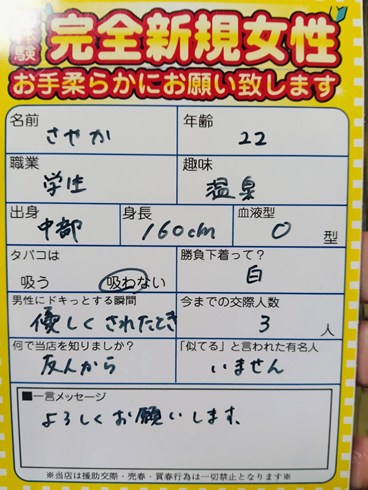 験
完全新規女性
お手柔らかにお願い致します
名前 さやか 年齢 22
職業 学生 趣味 温泉
出身 中部 身長 160cm 血液型 O 型
タバコは 吸う 吸わない 勝負下着って? 白
男性にドキっとする瞬間 優しくされたとき 今までの交際人数 3 人
何で当店を知りましたか? 友人から 「似てる」と言われた有名人 いません
■一言メッセージ
よろしくお願いします、
※当店は援助交際・売春・買春行為は一切禁止となります※